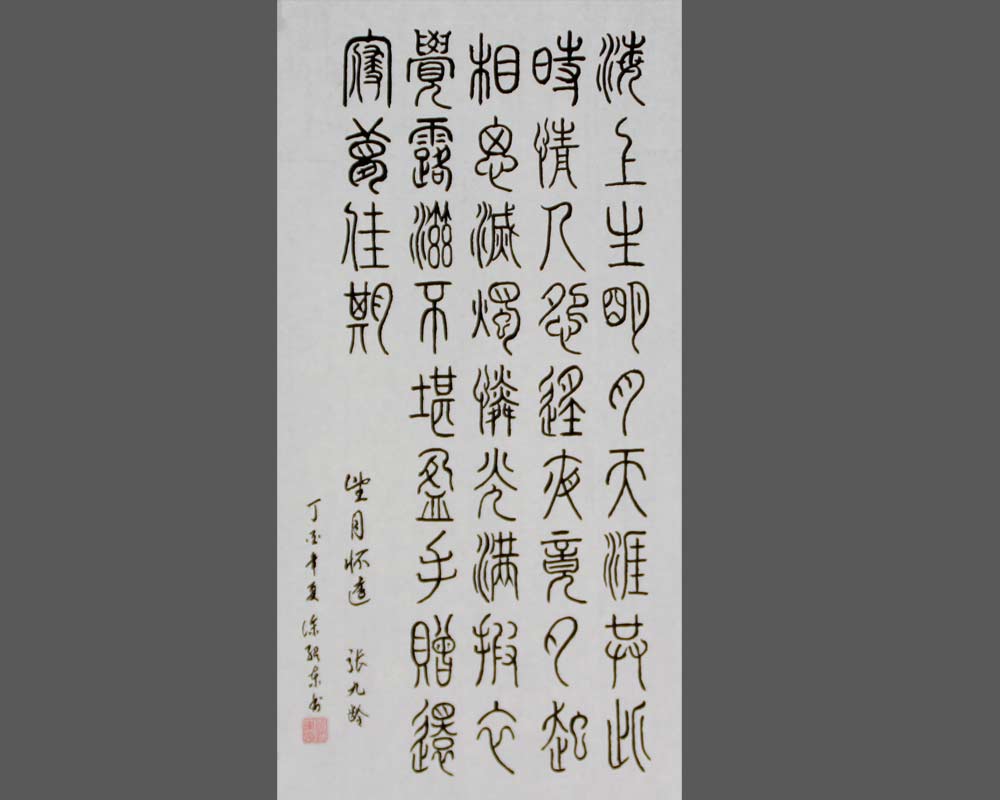 海上生明月天涯共此
時情人怨遙夜竟夕起
相思滅燭憐光滿披衣
覺露滋不堪盈手贈還
寢夢佳期
望月怀远 张九龄
丁酉年夏 东书